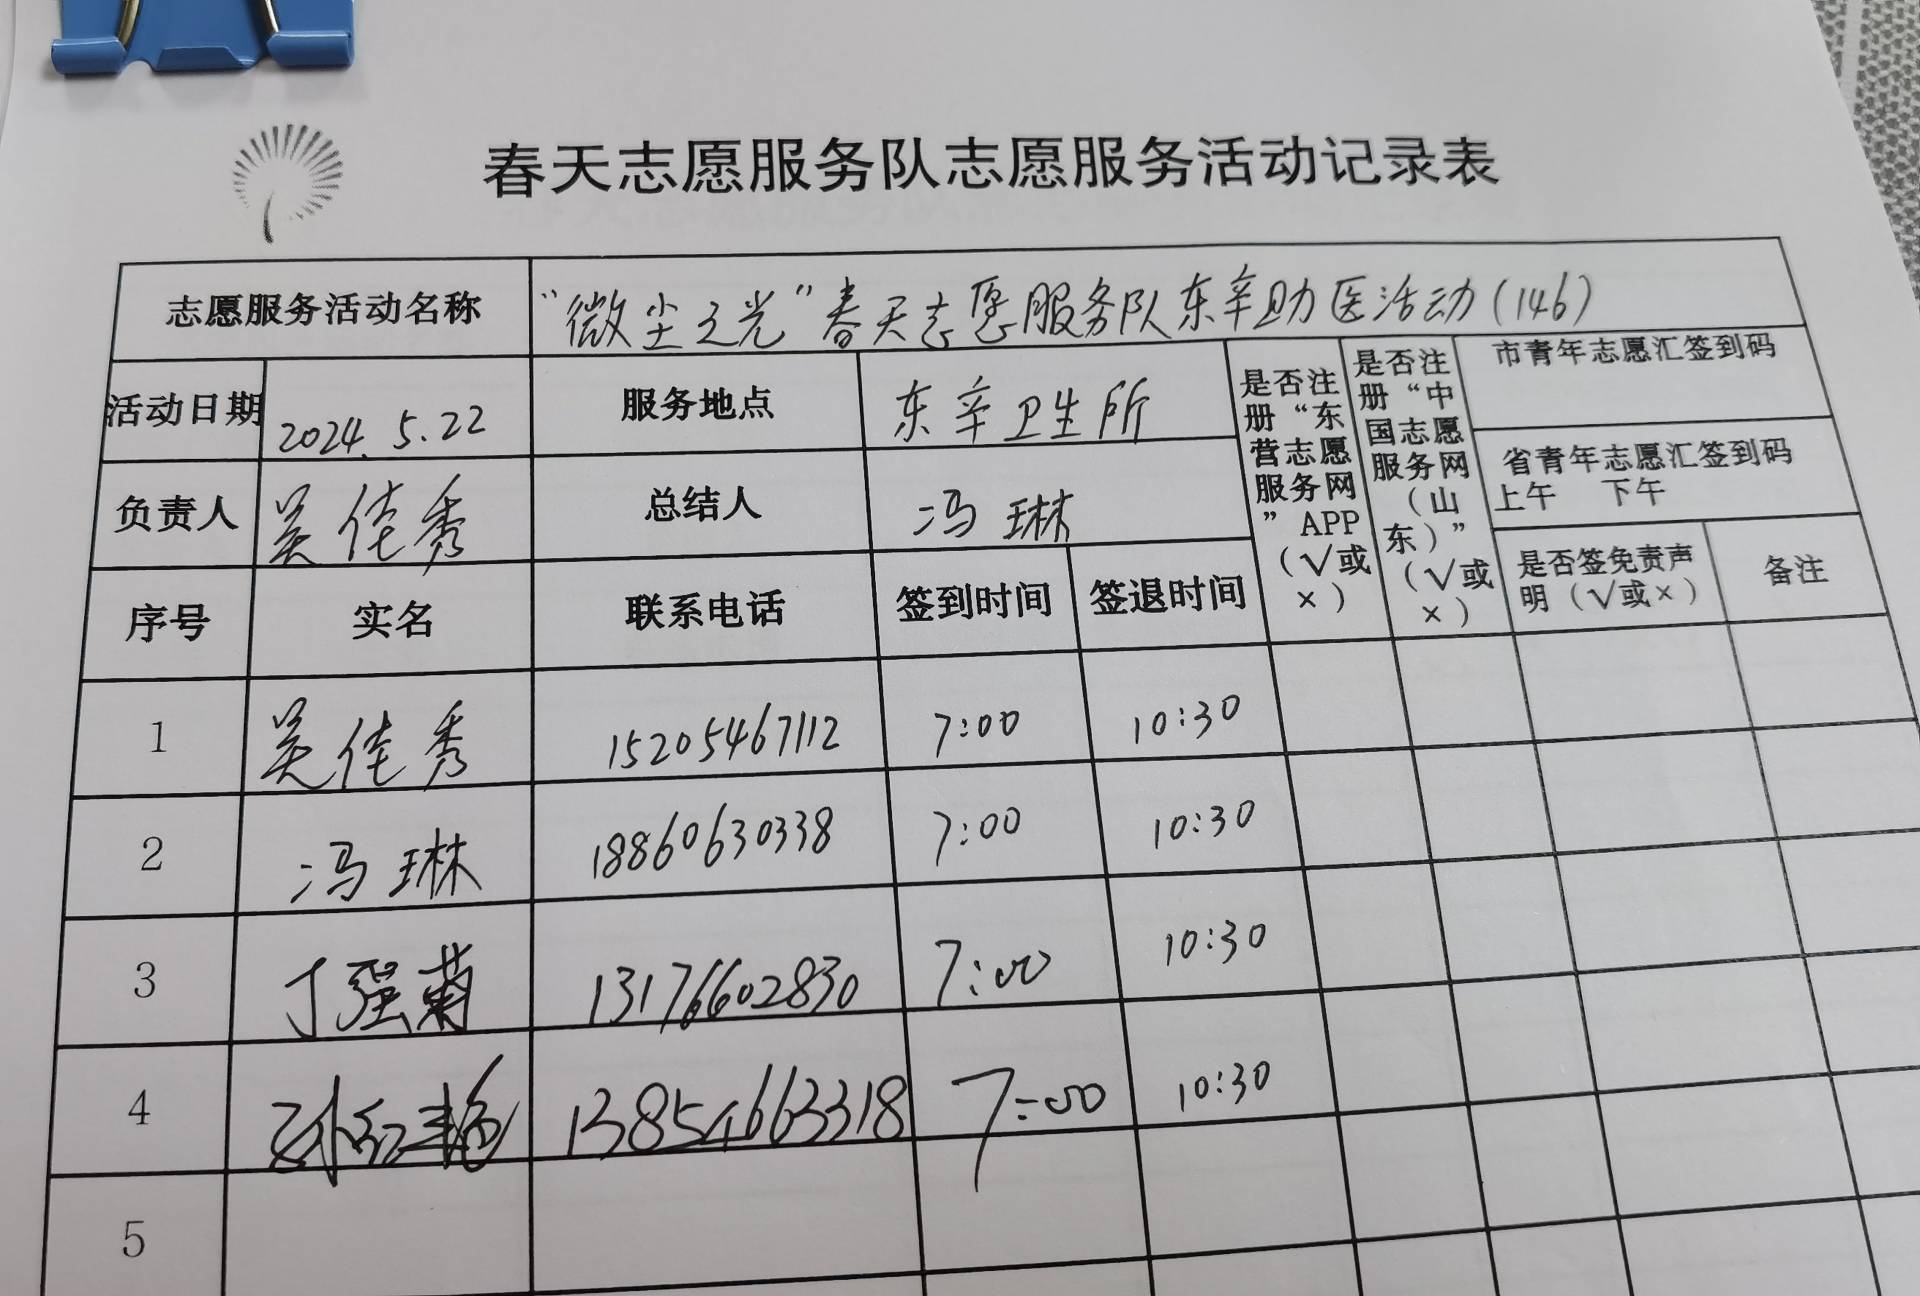 春天志愿服务队志愿服务活动记录表
志愿服务活动名称 “微尘之光”春天志愿服务队东辛助医活动(146)
活动日期 2024.5.22 服务地点 东辛卫生所
负责人 吴佳秀 总结人 冯琳
是否注册“东营志愿服务网”APP（√或×）
是否注册“中国志愿服务网（山东）”（√或×）
市青年志愿汇签到码
省青年志愿汇签到码
上午 下午
是否签免责声明（√或×） 备注
序号 实名 联系电话 签到时间 签退时间
1 吴佳秀 15205467112 7:00 10:30
2 冯琳 18860630338 7:00 10:30
3 丁强菊 13176602830 7:00 10:30
4 孙红艳 13854663318 7:00 10:30
5